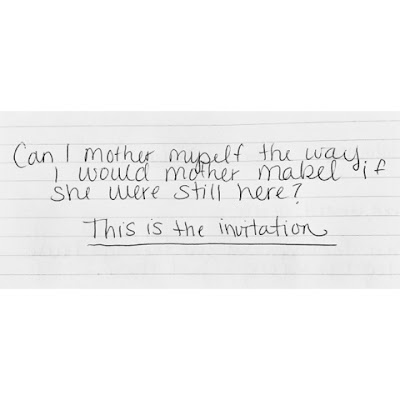 Can I mother myself the way
I would mother Mabel if
she were still here?
This is the invitation